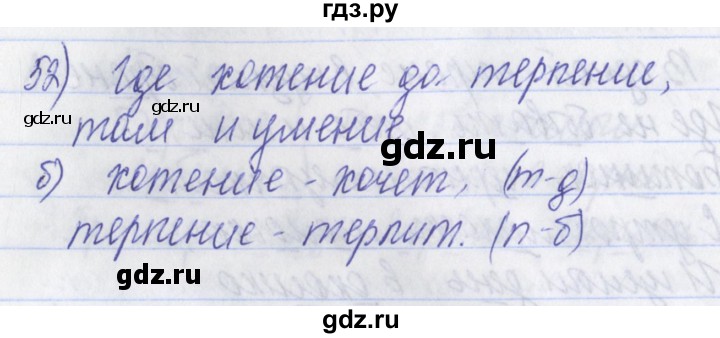 гдз.ру
52) Где хотение да терпение,
gdz.ru
gdz.ru
там и умение.
gdz.ru
б) хотение - хочет, (т-д)
терпение - терпит. (п-б)
gdz.ru
gdz.ru